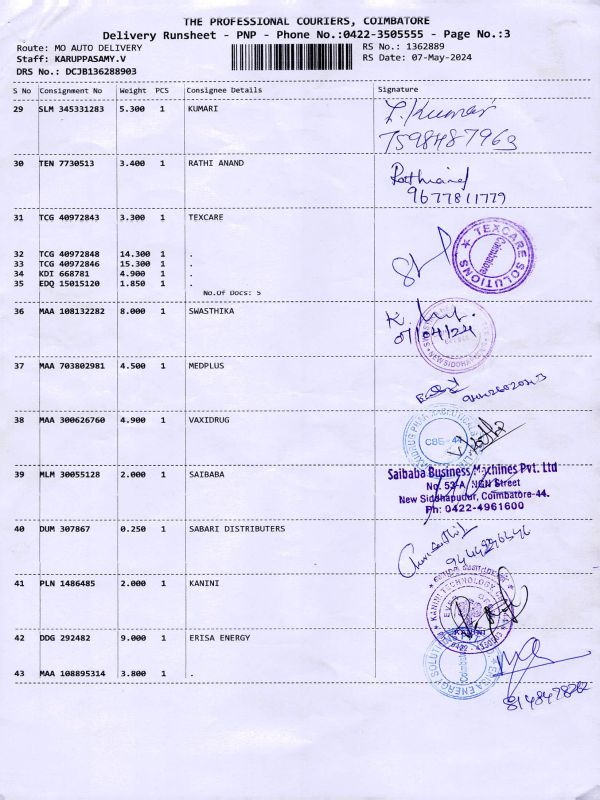 THE PROFESSIONAL COURIERS, COIMBATORE
Delivery Runsheet - PNP - Phone No.:0422-3505555 - Page No.:3
Route: MO AUTO DELIVERY RS No.: 1362889
Staff: KARUPPASAMY.V RS Date: 07-May-2024
DRS No.: DCJB136288903
S No Consignment No Weight PCS Consignee Details Signature
29 SLM 345331283 5.300 1 KUMARI
7598487963
30 TEN 7730513 3.400 1 RATHI ANAND
9677811779
31 TCG 40972843 3.300 1 TEXCARE
TEXCARE SOLUTIONS
Coimbatore
32 TCG 40972848 14.300 1 .
33 TCG 40972846 15.300 1 .
34 KDI 668781 4.900 1 .
35 EDQ 15015120 1.850 1 .
No.Of Docs: 5
36 MAA 108132282 8.000 1 SWASTHIKA
07/04/24
37 MAA 703802981 4.500 1 MEDPLUS
38 MAA 300626760 4.900 1 VAXIDRUG
CBE-44
39 MLM 30055128 2.000 1 SAIBABA
Saibaba Business Machines Pvt. Ltd
No. 53-A, NGN Street
New Siddhapudur, Coimbatore-44.
Ph: 0422-4961600
40 DUM 307867 0.250 1 SABARI DISTRIBUTERS
41 PLN 1486485 2.000 1 KANINI
KANINI TECHNOLOGY
KANINI
42 DDG 292482 9.000 1 ERISA ENERGY
43 MAA 108895314 3.800 1 .